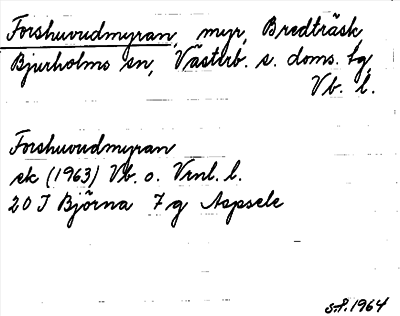 Forshuvudmyran, myr, Bredträsk
Bjurholms sn, Västerb. s. doms. tg,
Vb. l.
Forshuvudmyran
ek (1963) Vb. o. Vrnl. l.
20 I Björna 7 g Aspsele
S.P. 1964